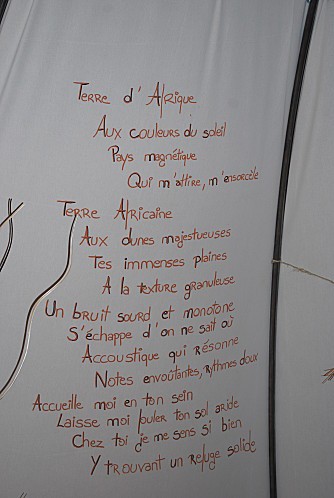 Terre d'Afrique
Aux couleurs du soleil
Pays magnétique
Qui m'attire, m'ensorcèle
Terre Africaine
Aux dunes majestueuses
Tes immenses plaines
A la texture granuleuse
Un bruit sourd et monotone
S'échappe d'on ne sait où
Accoustique qui résonne
Notes envoûtantes, rythmes doux
Accueille moi en ton sein
Laisse moi fouler ton sol aride
Chez toi je me sens si bien
Y trouvant un refuge solide